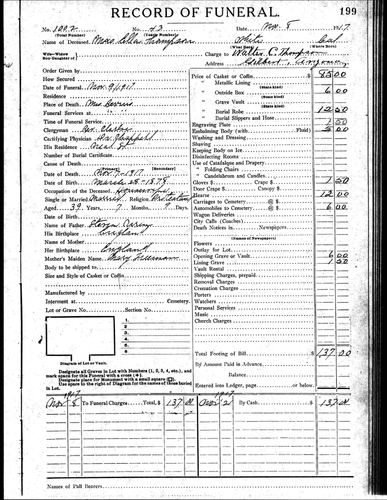 RECORD OF FUNERAL.
199
No. 1002 No. 43 Date Nov. 8 1917
(Total Number) (Yearly Number)
Name of Deceased Mrs. Ella Thompson White Cal
(What Race) (Where Born)
Wife—Widow
Son—Daughter of
Charge to Walter C. Thompson
Address Gilbert, Arizona
Order Given by
How Secured
Date of Funeral Nov. 9, 1917
Residence
Place of Death
Funeral Services at
Time of Funeral Service
Clergyman Rev.
Certifying Physician Dr.
His Residence
Number of Burial Certificate
Cause of Death
Date of Death Nov. 7, 1917
Date of Birth March 28 - 1879
Occupation Housewife
Single or Married Married Religion
Aged 38 Years 7 Months 9 Days
Date of Birth
Name of Father
His Birthplace England
Name of Mother
Her Birthplace England
Mother's Maiden Name Mary Freeman
Body to be shipped to
Size and Style of Casket or Coffin
Manufactured by
Interment at Cemetery
Lot or Grave No. Section No.
1
2
3
4
5
Diagram of Lot or Vault.
Designate all Graves in Lot with Numbers (1, 2, 3, 4, etc.), and
mark space for this Funeral with a cross (+).
Designate place for Monument with a small square (□).
Use space to the right of Diagram for the names of those buried
in Lot.
Price of Casket or Coffin $85.00
" Metallic Lining
(State kind)
" Outside Box 6 00
(State kind)
" Grave Vault
(State kind)
" Burial Robe 12 50
(State kind)
" Burial Slippers and Hose
Engraving Plate 1 50
Embalming Body (with Fluid) 5 00
Washing and Dressing
Shaving
Keeping Body on Ice
Disinfecting Rooms
Use of Catafalque and Drapery
" Folding Chairs
" Candelabrum and Candles
Gloves $ 1 50
Door Crape $ Canopy $
Hearse 12 00
Carriages to Cemetery @ $
Automobiles to Cemetery @ $ 6 00
Wagon Deliveries
City Calls (Coaches)
Death Notices in Newspapers
(Names of Newspapers)
Flowers
Outlay for Lot
Opening Grave or Vault 6 00
Lining Grave 1 50
Vault Rental
Shipping Charges, prepaid
Removal Charges
Cremation Charges
Porters
Watchers
Personal Services
Music
Church Charges
Total Footing of Bill $137 00
By Amount Paid in Advance
Balance
Entered into Ledger, page or below.
1917 1917
Nov 8 To Funeral Charges Total, $ 137 00 Nov 21 By Cash $ 137 00
Names of Pall Bearers